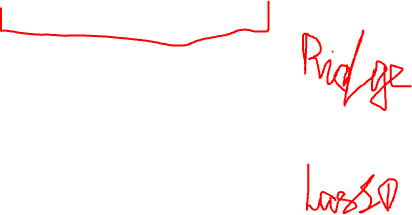 Ridge
Lasso